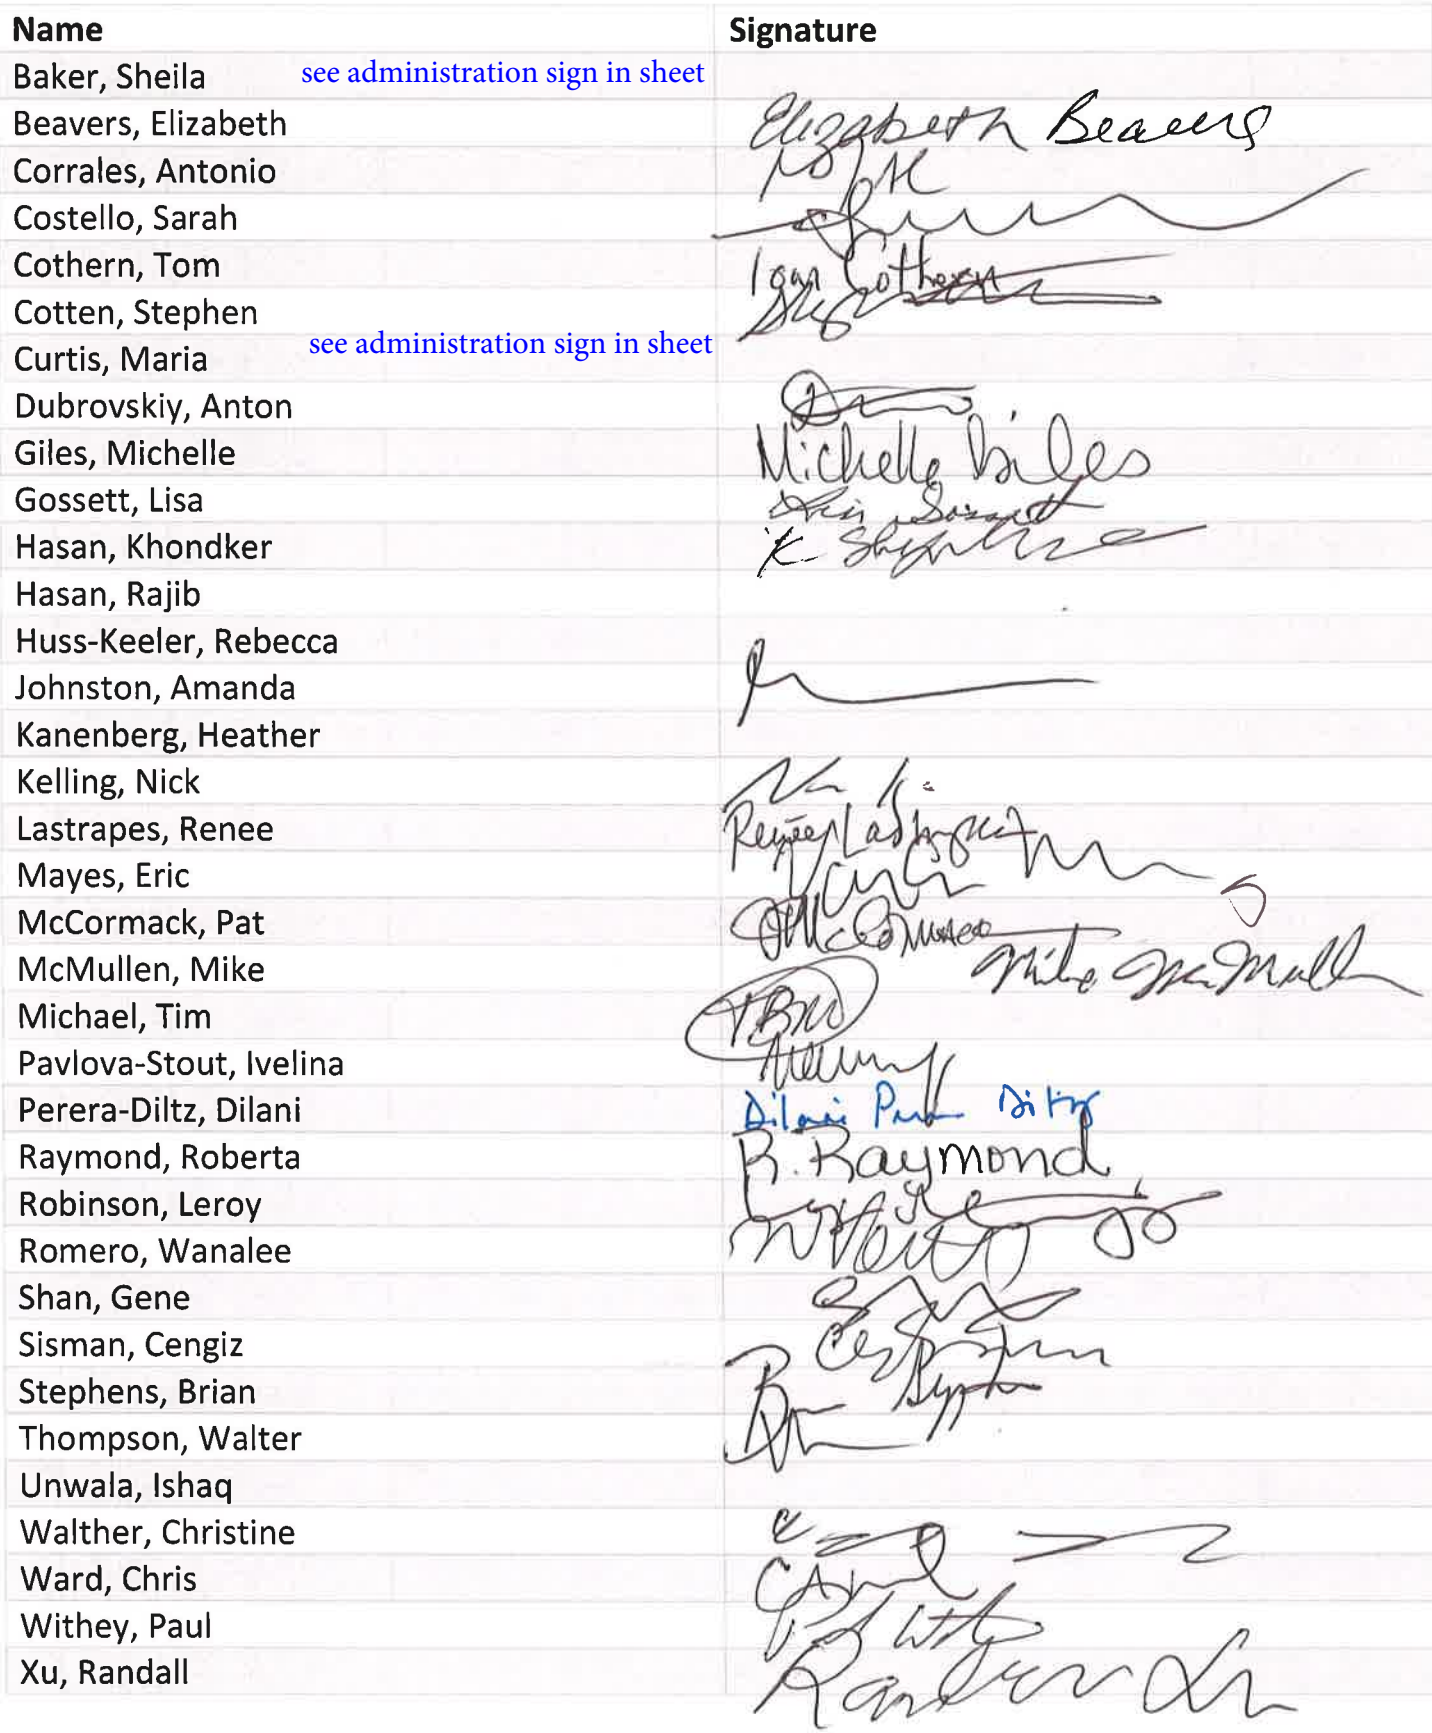 Name Signature
Baker, Sheila see administration sign in sheet
Beavers, Elizabeth Elizabeth Beavers
Corrales, Antonio
Costello, Sarah
Cothern, Tom Tom Cothern
Cotten, Stephen
Curtis, Maria see administration sign in sheet
Dubrovskiy, Anton
Giles, Michelle Michelle Giles
Gossett, Lisa Lisa Gossett
Hasan, Khondker K.
Hasan, Rajib
Huss-Keeler, Rebecca
Johnston, Amanda
Kanenberg, Heather
Kelling, Nick
Lastrapes, Renee Renee Lastrapes
Mayes, Eric
McCormack, Pat McCormack
McMullen, Mike Mike McMullen
Michael, Tim TBM
Pavlova-Stout, Ivelina
Perera-Diltz, Dilani Dilani Perera Diltz
Raymond, Roberta R. Raymond
Robinson, Leroy
Romero, Wanalee
Shan, Gene
Sisman, Cengiz
Stephens, Brian
Thompson, Walter
Unwala, Ishaq
Walther, Christine
Ward, Chris
Withey, Paul
Xu, Randall